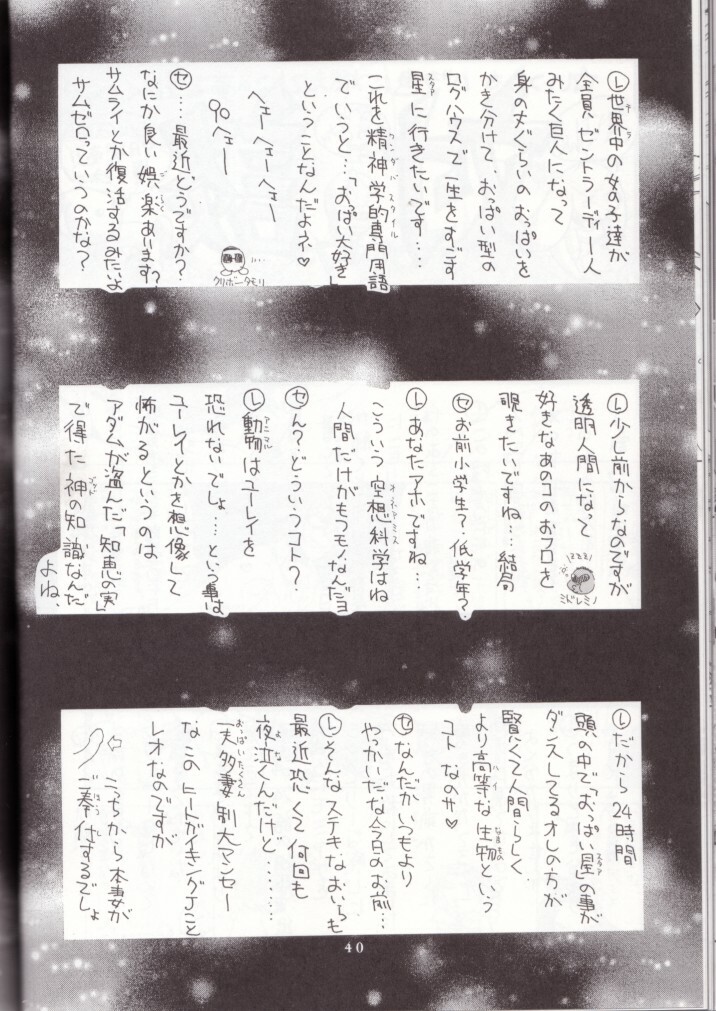 Ⓛ世界中の女の子達が
全員ゼントラーディー人
みたく巨人になって
身のたぐらいのおっぱいを
かき分けて、おっぱい型の
ログハウスで一生をすごす
星に行きたいです…
これを精神学的専門用語
でいうと…「おっぱい大好き」
ということなんだよネ♡
ヘェーヘェーヘェー
90ヘェー
クリボータモリ
Ⓢ…最近どうですか?
なにか良い娯楽あります?
サムライとか復活するみたいよ
サムゼロっていうのかな?
Ⓛ少し前からなのですが
透明人間になって
好きなあのコのおフロを
覗きたいですね…結局
ミドレミノ
Ⓢお前小学生?低学年?
Ⓛあなたアホですね…
こういう空想科学はね
人間だけがもつモノなんだヨ
Ⓢん?どういうコト?
Ⓛ動物はユーレイを
恐れないでしょ…という事は
ユーレイとかを想像して
怖がるというのは
アダムが盗んだ「知恵の実」
で得た神の知識なんだ
よね、
Ⓛだから24時間
頭の中で「おっぱい星」の事が
ダンスしてるオレの方が
賢くて人間らしく
より高等な生物という
コトなのサ♡
Ⓢなんだかいつもより
やっかいだな今日のお前…
Ⓛそんなステキなおいらも
最近恐くて何回も
夜泣くんだけど………
一夫多妻制大マンセー
なこのヒートガイキングJこと
レオなのですが
⇦こっちから本妻が
ご奉仕するでしょ
40